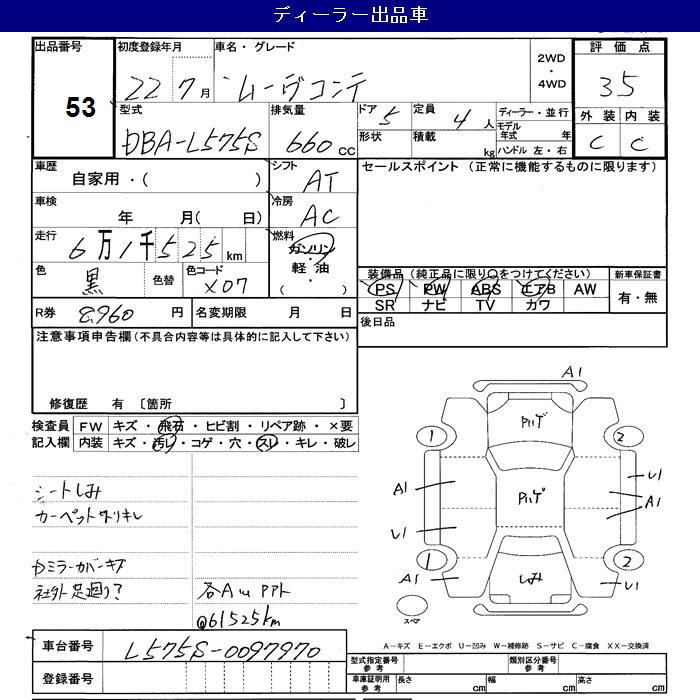 ディーラー出品車
出品番号 初度登録年月 車名・グレード 評価点
53 22 7月 ムーヴコンテ 2WD・4WD 3.5
型式 排気量 ドア 5 定員 4人 ディーラー・並行 外装 内装
DBA-L575S 660cc 形状 積載 kg モデル年式 年 C C
ハンドル 左・右
車歴 シフト セールスポイント (正常に機能するものに限ります)
自家用・( ) AT
車検 冷房
年 月( 日) AC
走行 燃料
6万1千525km ガソリン・軽油・( )
色 色替 色コード 装備品 (純正品に限り○をつけてください) 新車保証書
黒 X07 PS PW ABS エアB AW 有・無
SR ナビ TV カワ
R券 8,960円 名変期限 月 日 後日品
注意事項申告欄(不具合内容等は具体的に記入して下さい)
修復歴 有 〔箇所 〕
検査員 FW キズ・飛石・ヒビ割・リペア跡・×要
記入欄 内装 キズ・汚れ・コゲ・穴・スレ・キレ・破レ
シートしみ
カーペットスリキレ
Dミラーカバーキズ
社外足廻り?
各AUPPト
@61525km
A1
Pハゲ
1 2
A1 Pハゲ U1
A1
U1
1 2
A1 しみ U1
スペア
A-キズ E-エクボ U-凹み W-補修跡 S-サビ C-腐食 XX-交換済
車台番号 L575S-0097970
型式指定番号 参考 類別区分番号 参考
登録番号 車庫証明用 参考 長さ cm 幅 cm 高さ cm